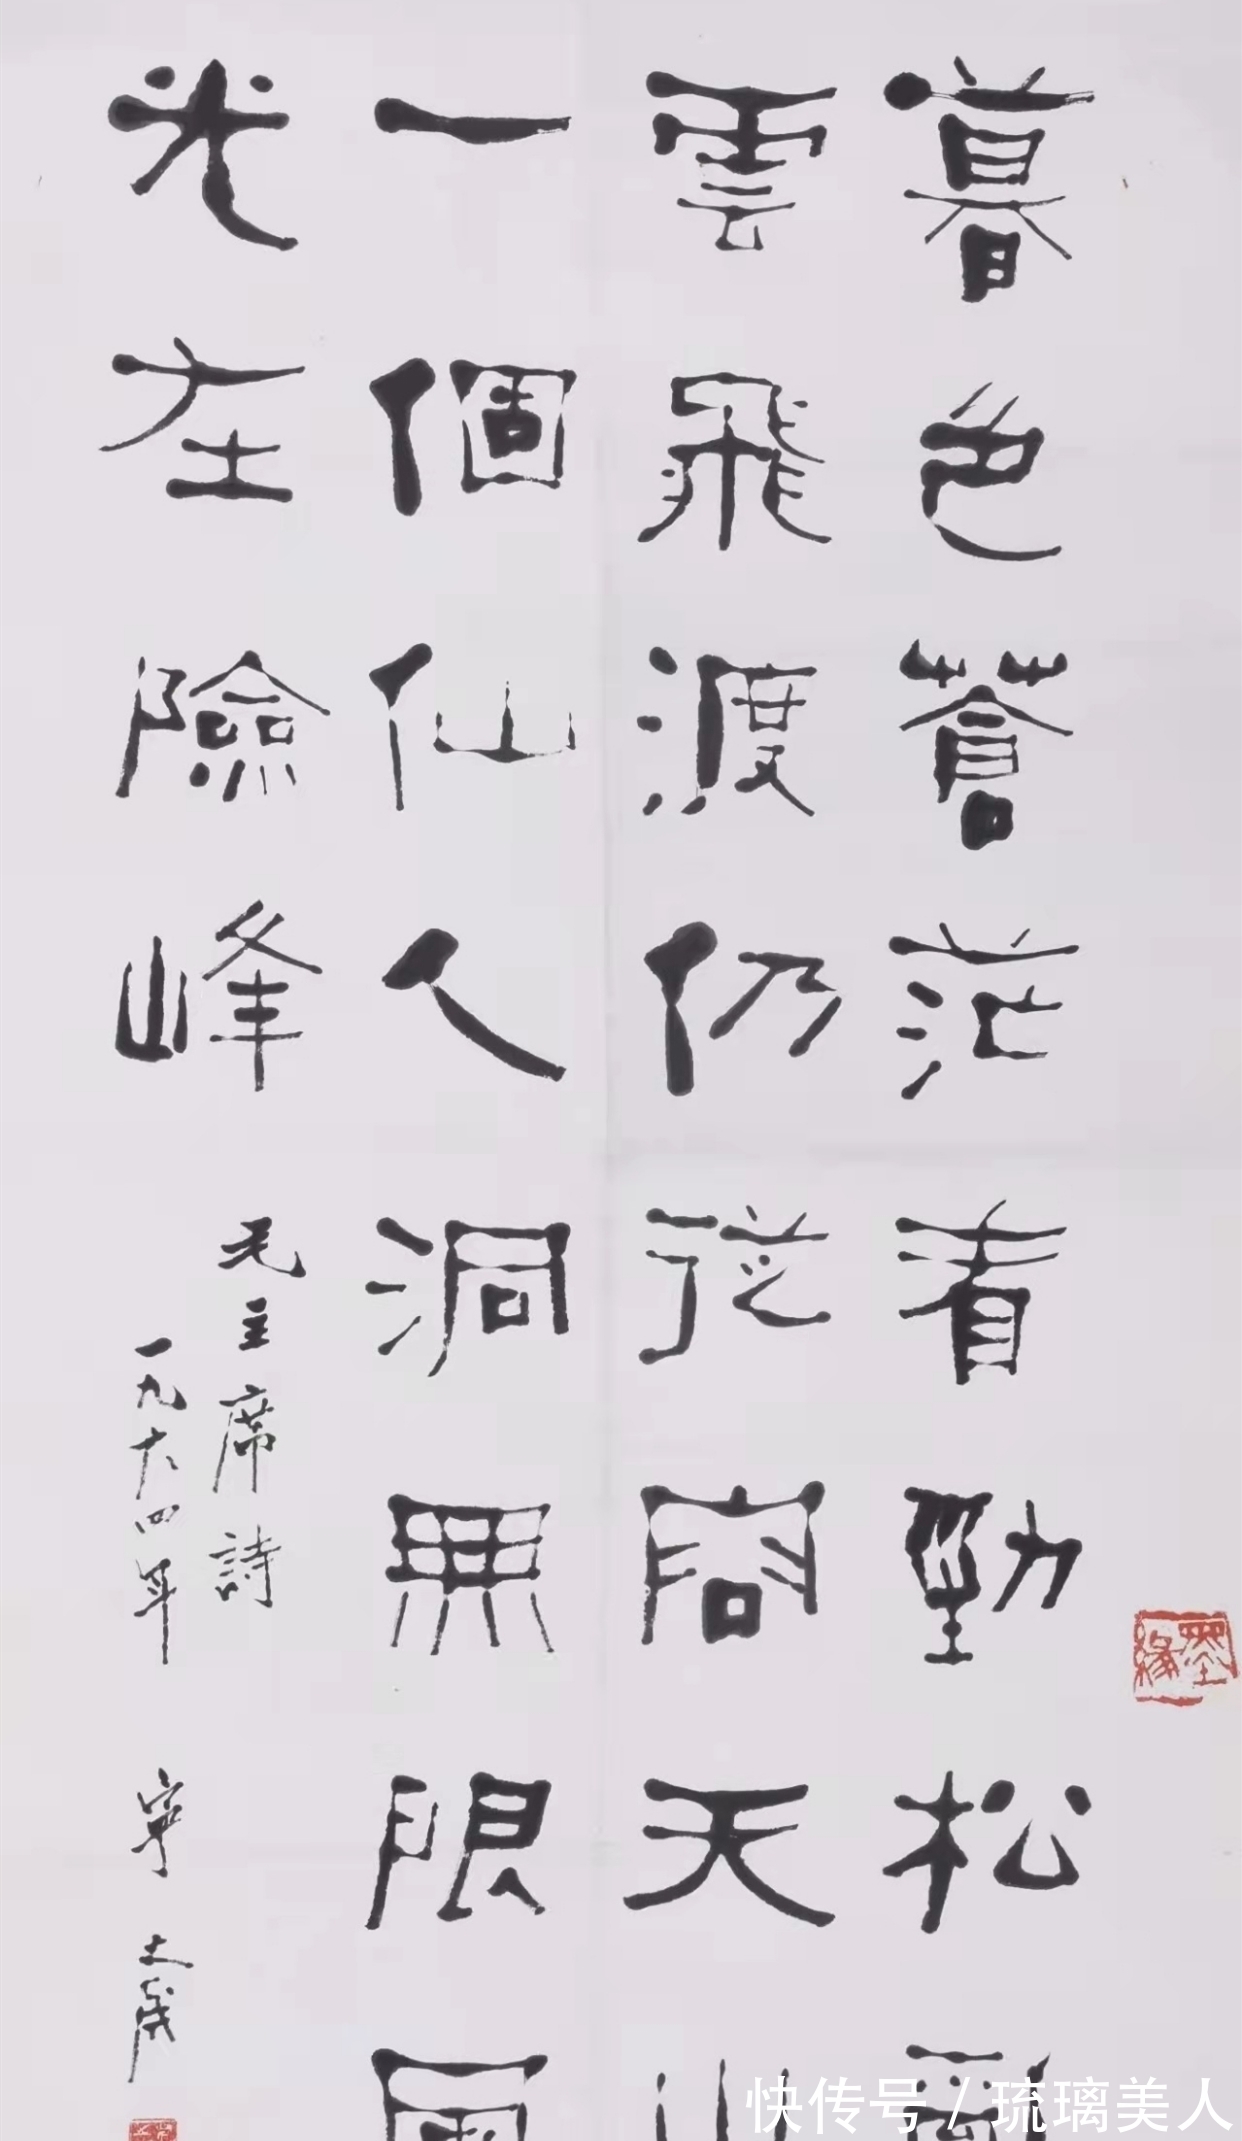 暮色蒼茫看勁松亂
雲飛渡仍從容天
一個仙人洞無限風
光在險峰
毛主席詩
一九六四年 寧
墨緣
快传号 / 琉璃美人